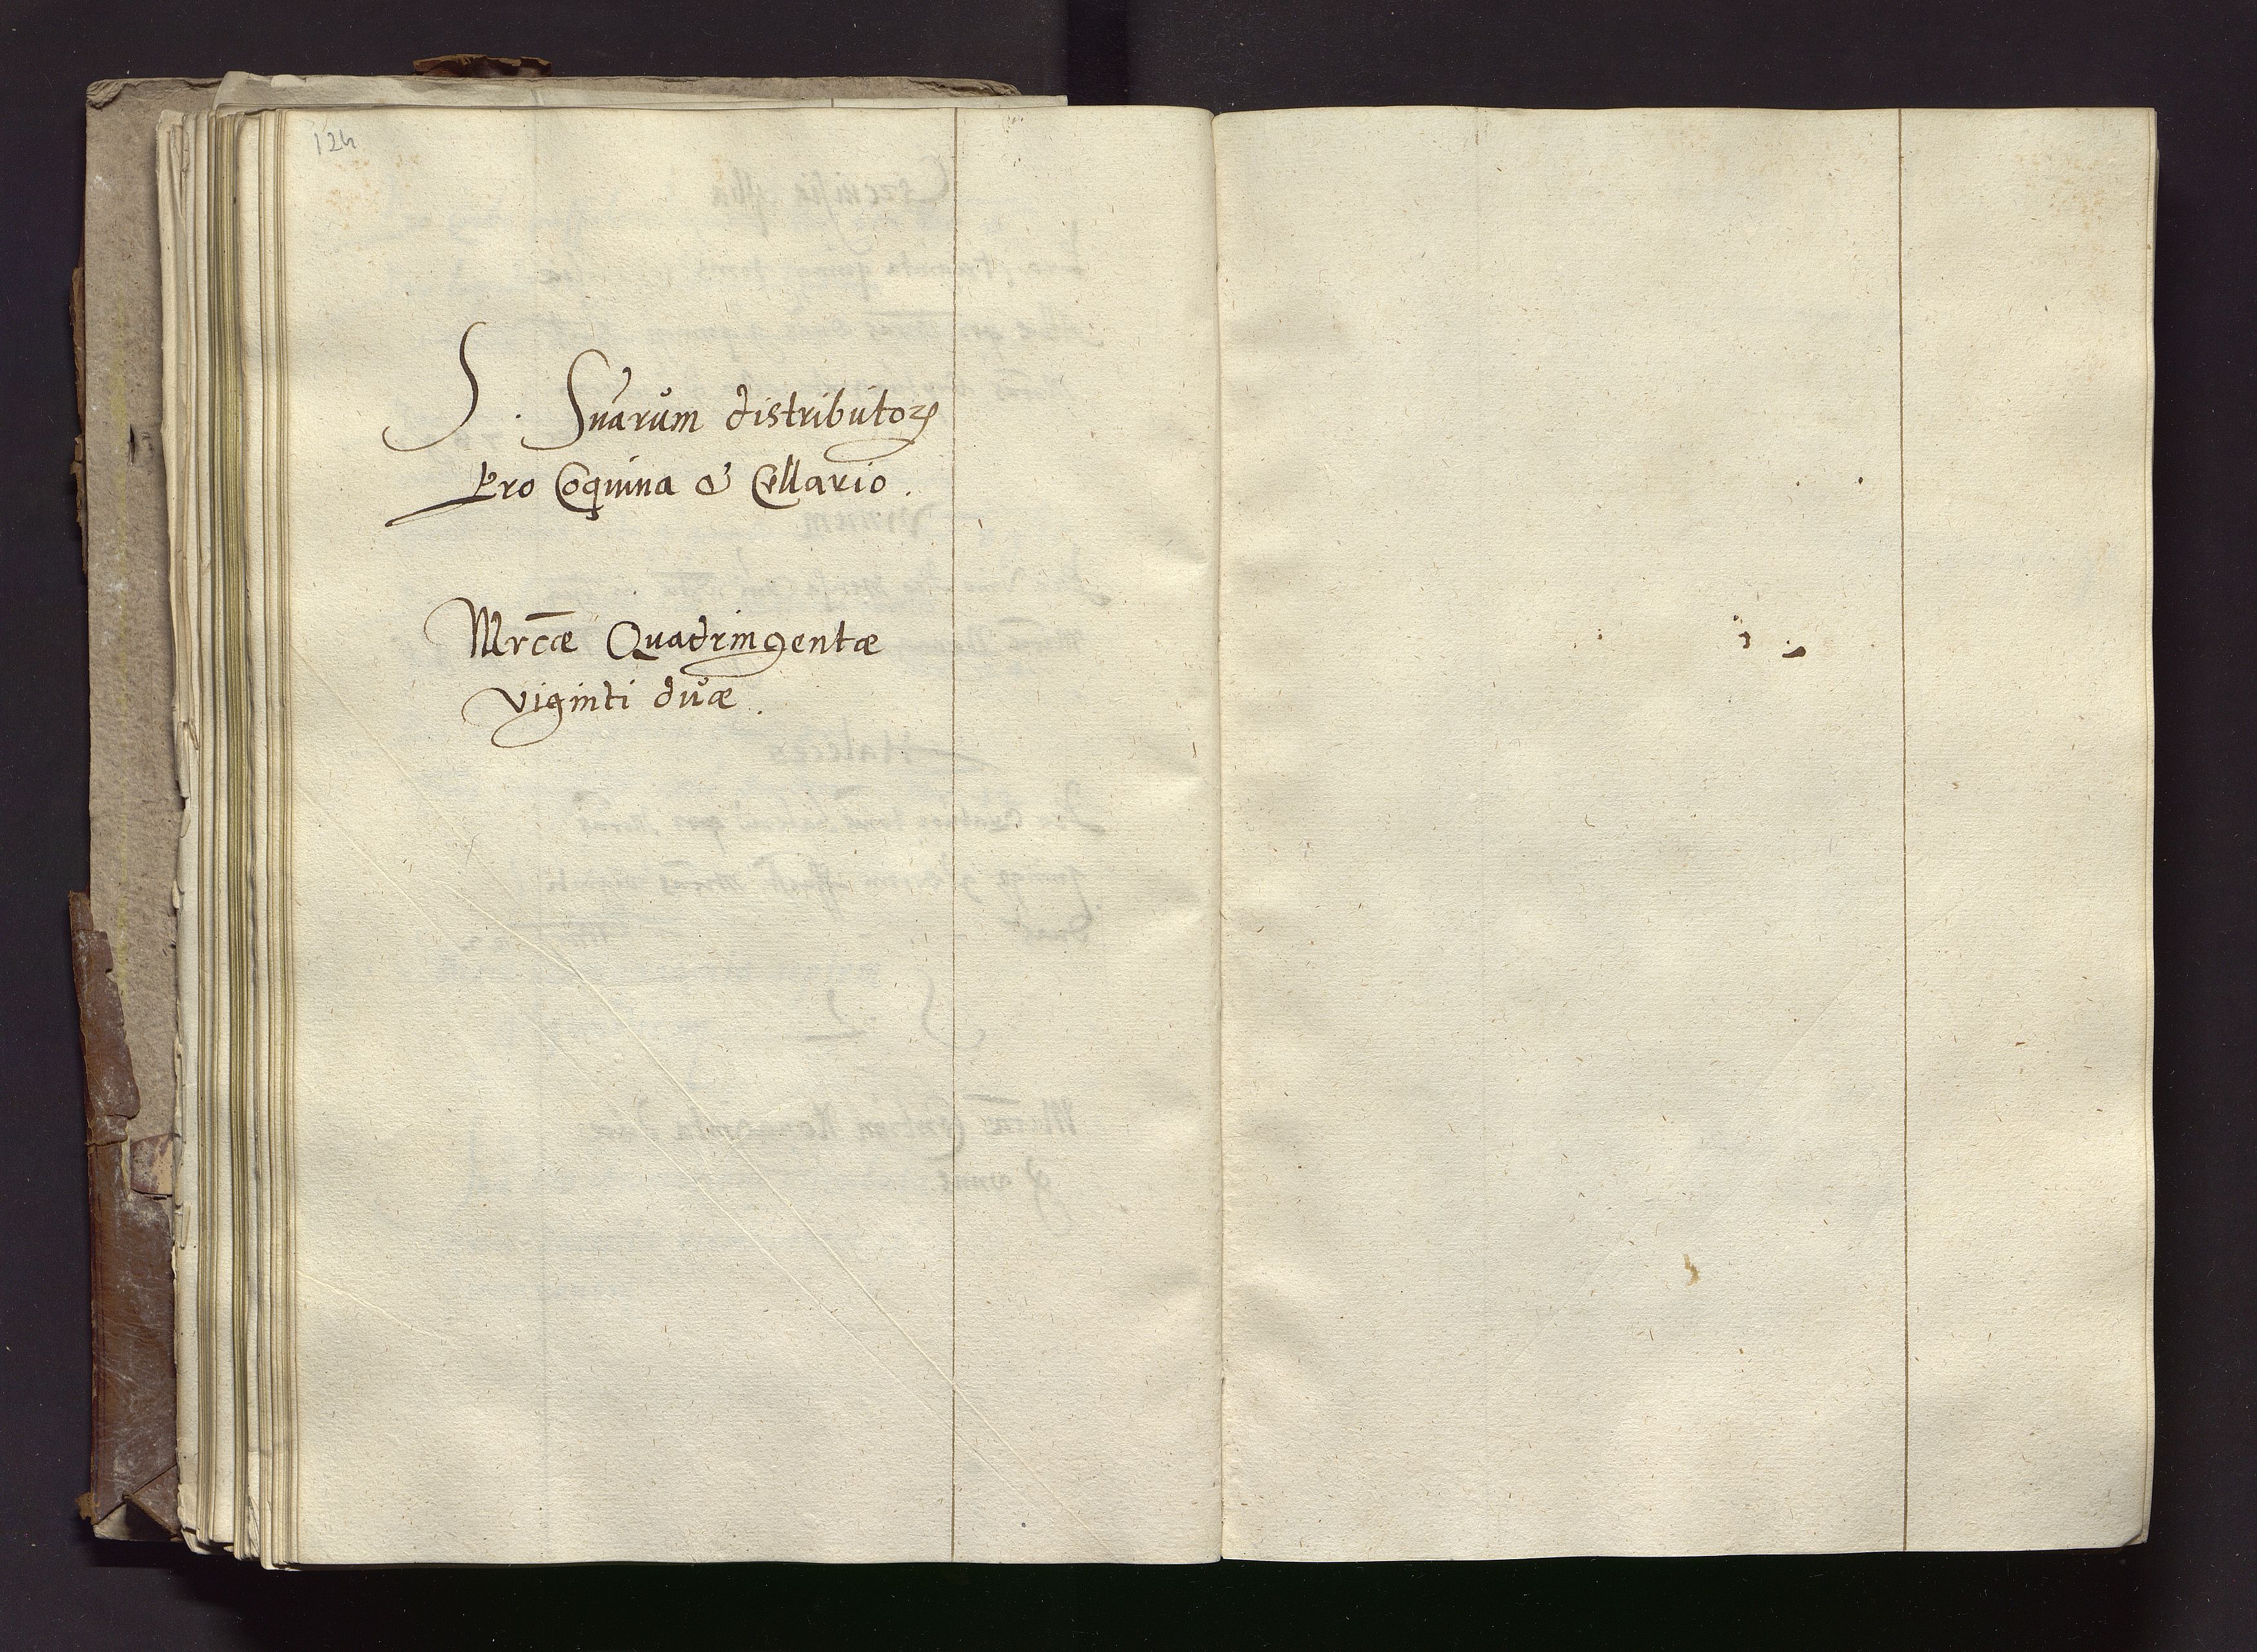 124
S. Suarum distributoꝝ
Pro Coquina & Cellario.
Mrcæ Quadringentæ
viginti duæ.